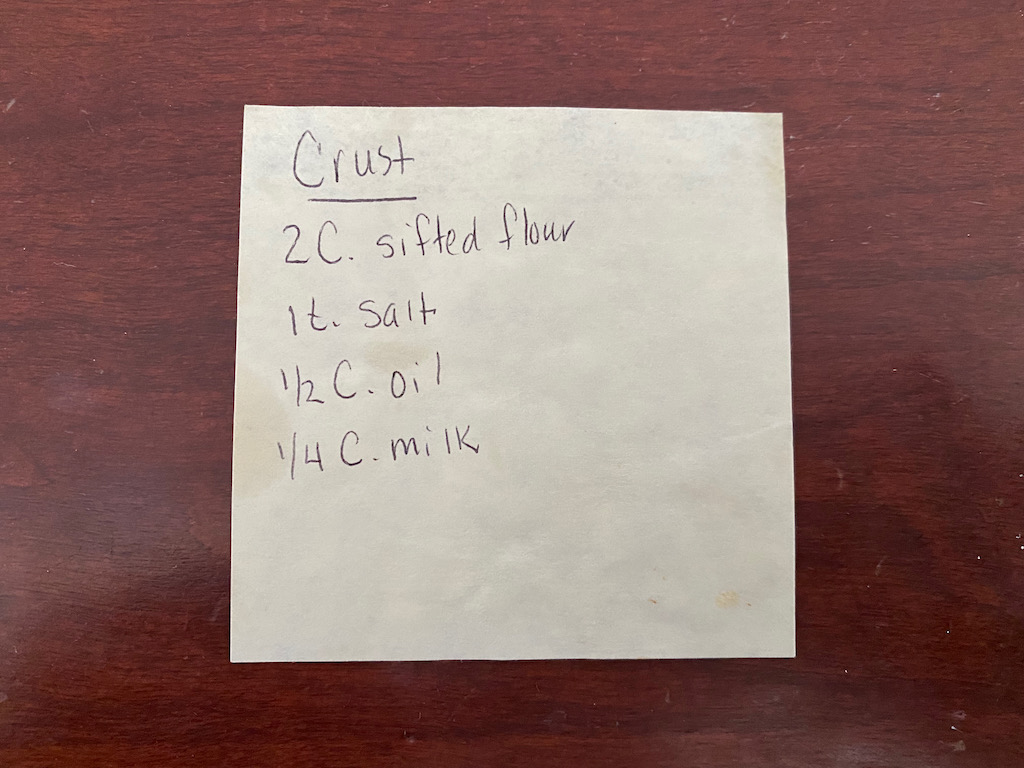 Crust
2 C. sifted flour
1 t. salt
1/2 C. oil
1/4 C. milk